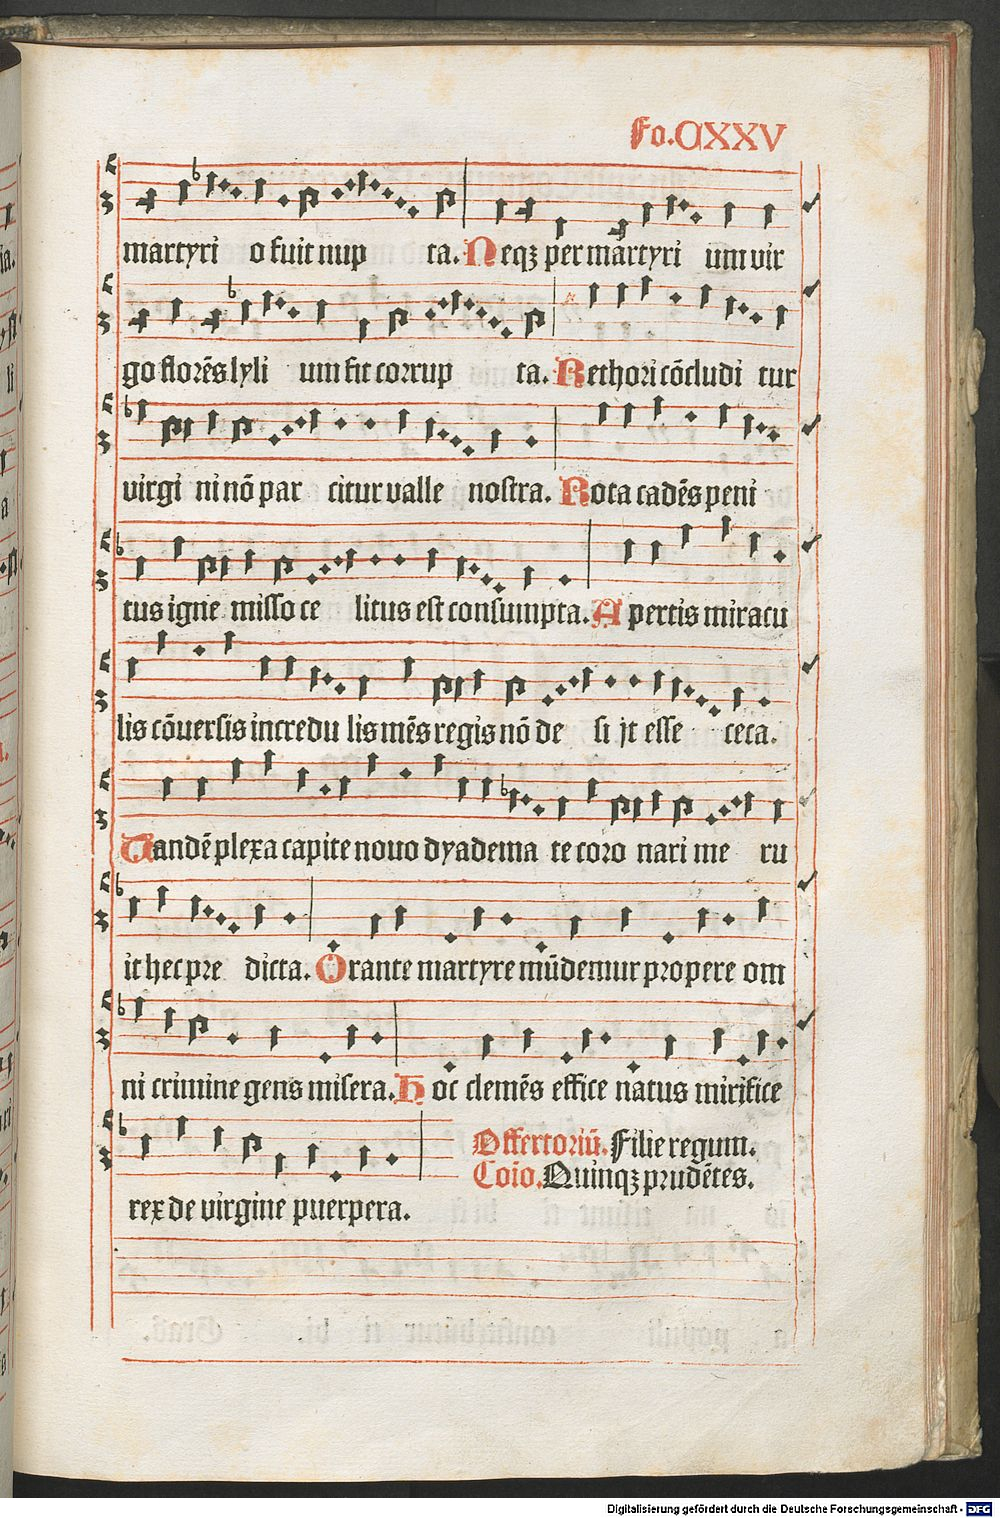 Fo.CXXV
martyri o fuit nup ta. Neqꝫ per martyri um vir
go florēs lyli um fit corrup ta. Rethori cōcludi tur
virgi ni nō par citur valle nostra. Rota cadēs peni
tus igne misso ce litus est consumpta. Apertis miracu
lis cōversis incredu lis mēs regis nō de si jt esse ceca.
Tandē plexa capite novo dyadema te coro nari me ru
it hec pre dicta. Orante martyre mūdemur propere om
ni crimine gens misera. Hoc clemēs effice natus mirifice
Offertoriū. Filie regum.
Coīo. Quinqꝫ prudētes.
rex de virgine puerpera.
Digitalisierung gefördert durch die Deutsche Forschungsgemeinschaft - DFG